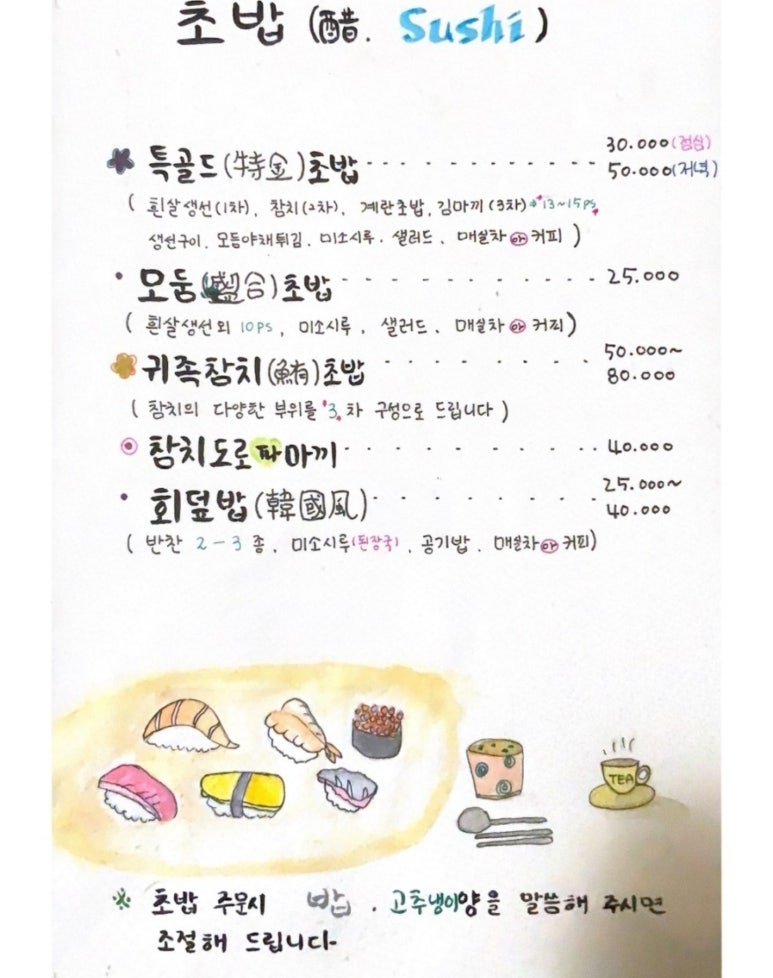 초밥 (醋. Sushi)
특골드(特金)초밥 - - - - - - - - - - - - 30.000(점심)
50.000(저녁)
( 흰살생선(1차), 참치(2차), 계란초밥, 김마끼(3차) 13~15PS,
생선구이. 모듬야채튀김. 미소시루. 샐러드. 매실차 or 커피 )
모둠(盛合)초밥 - - - - - - - - - - - - 25.000
( 흰살생선외 10PS, 미소시루, 샐러드, 매실차 or 커피)
귀족참치(鮪)초밥 - - - - - - - - 50.000~
80.000
( 참치의 다양한 부위를 3차 구성으로 드립니다 )
참치도로파마끼 - - - - - - - - 40.000
회덮밥(韓國風) - - - - - - - - 25.000~
40.000
( 반찬 2-3 종. 미소시루(된장국). 공기밥. 매실차 or 커피)
TEA
※ 초밥 주문시 밥. 고추냉이양을 말씀해 주시면
조절해 드립니다-